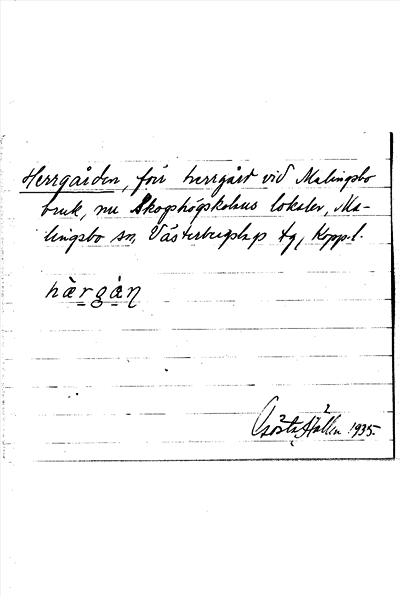 Herrgården, förr herrgård vid Malingsbo
bruk, nu Skogshögskolans lokaler, Ma-
lingsbo sn, Västerbergslags tg, Kopp. l.
hæ̀rgàn
Gösta Hallén 1935.